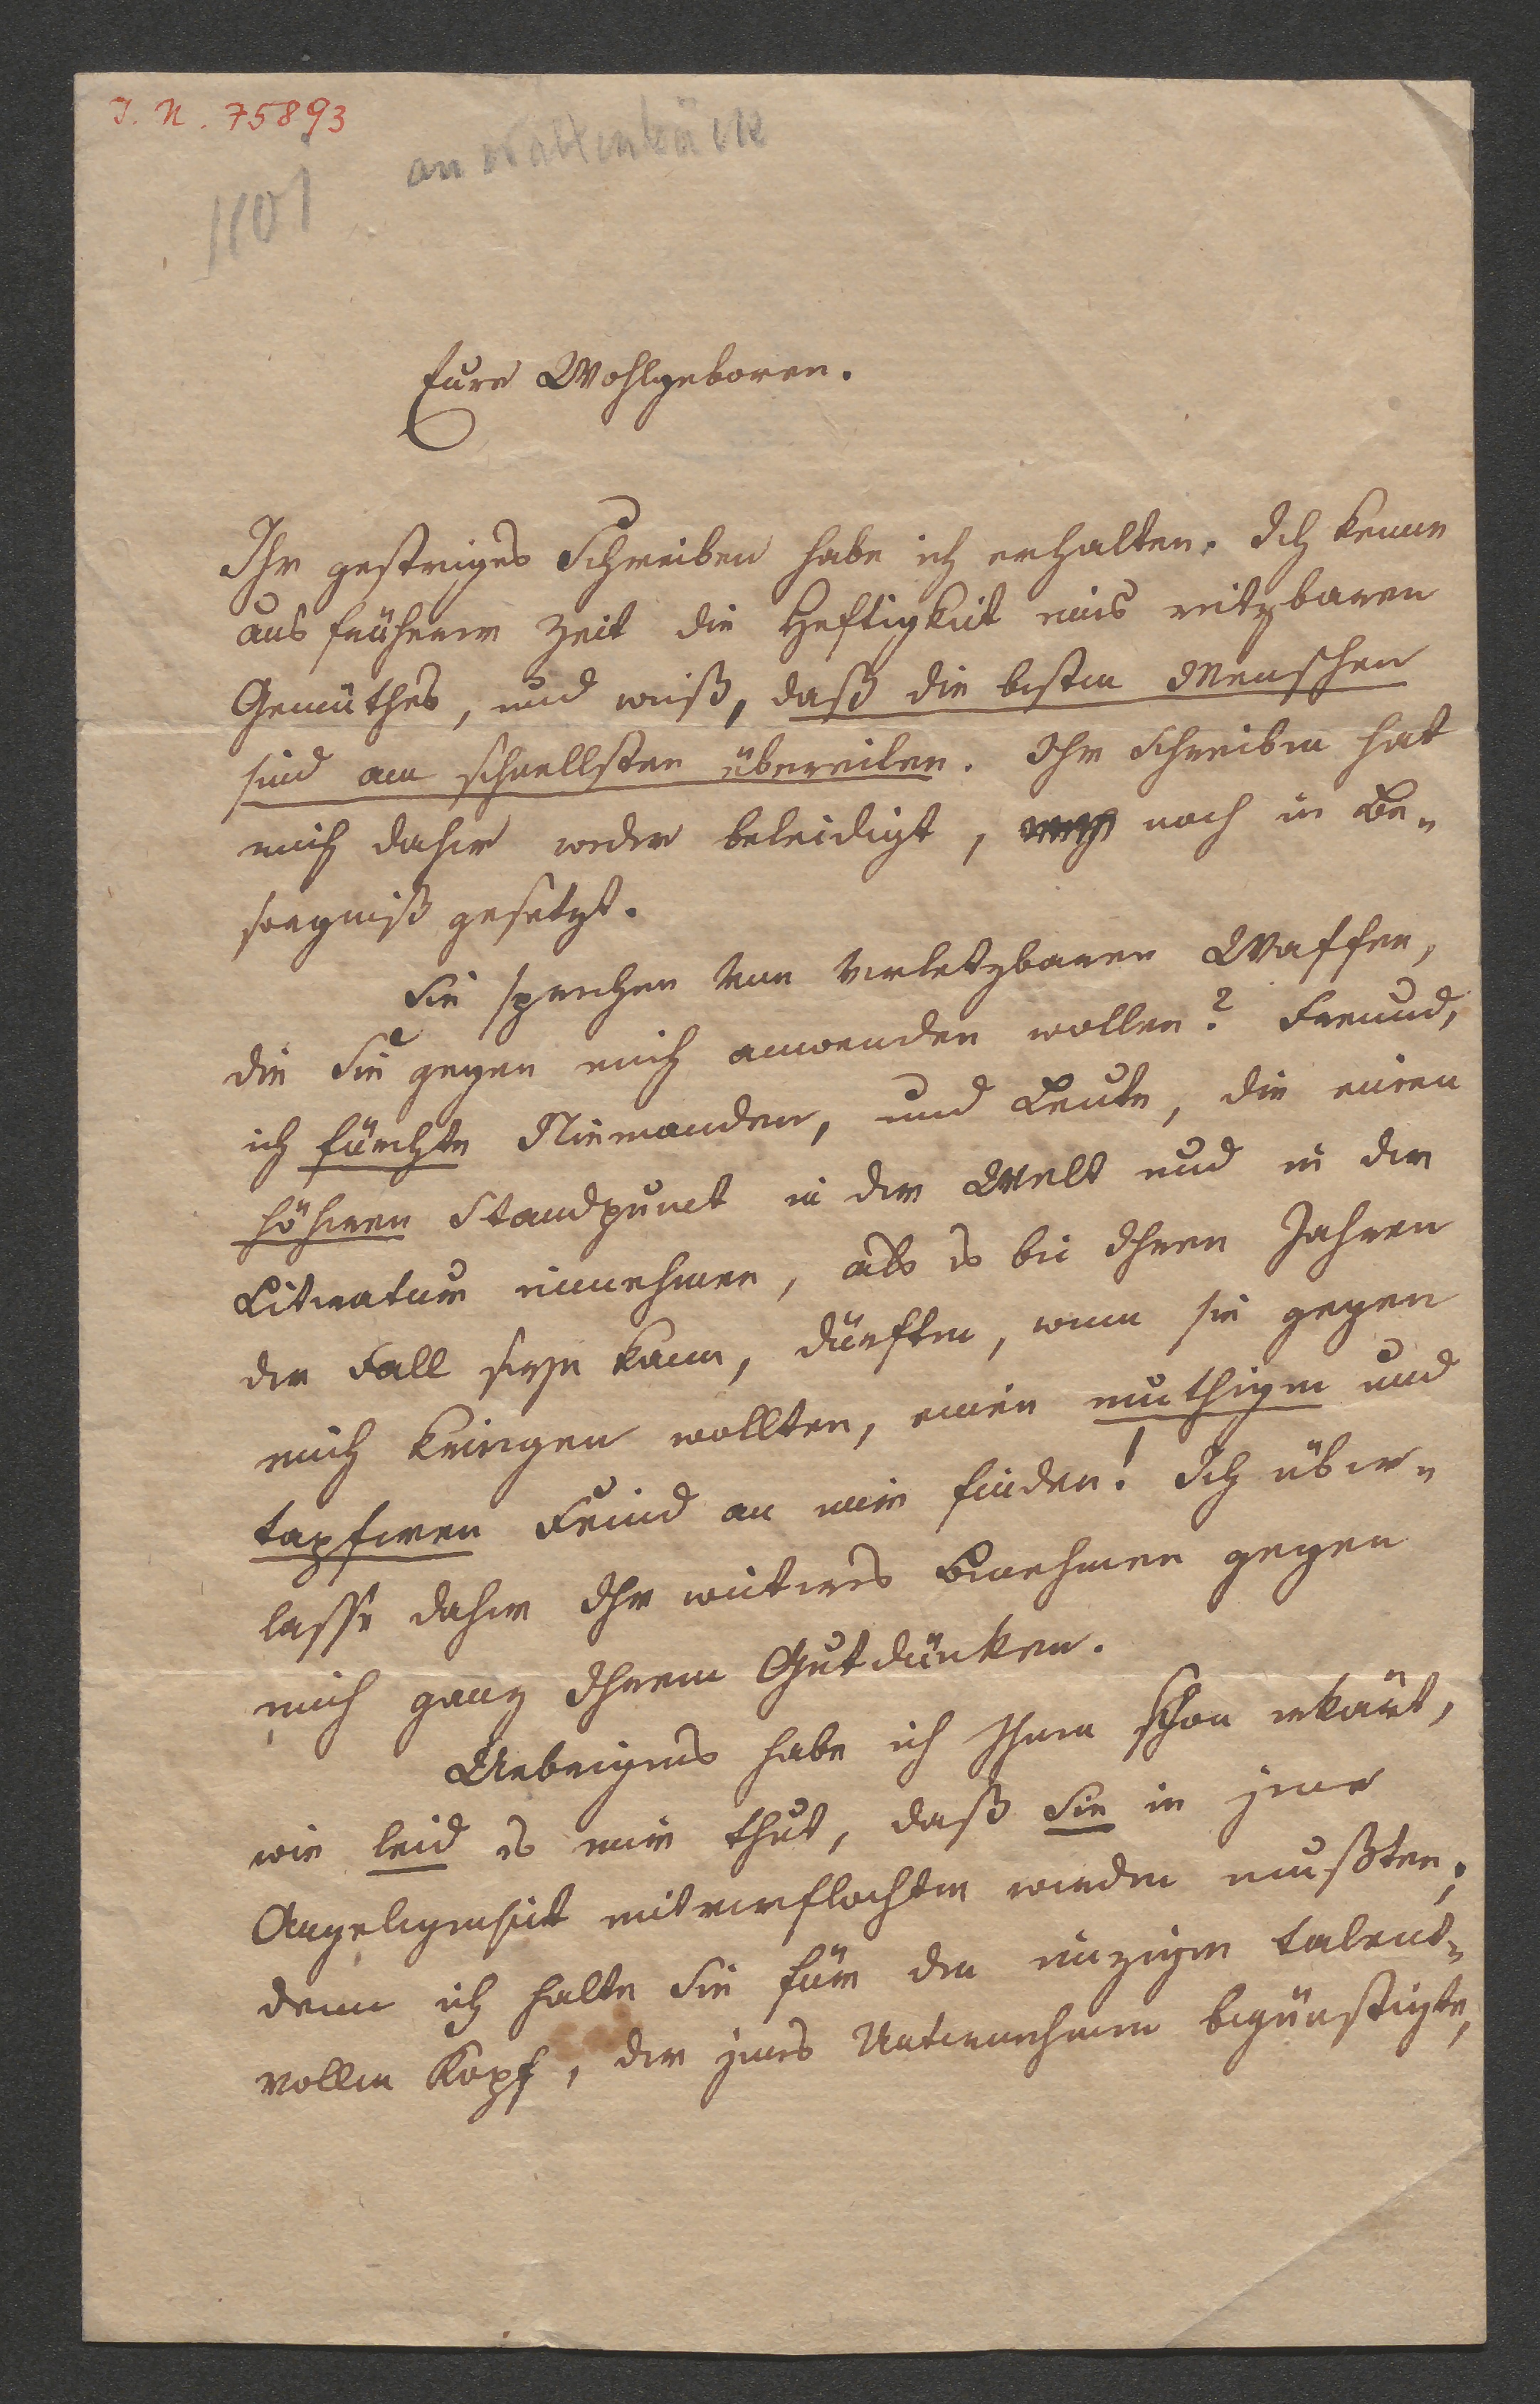 I. N. 75893
an
1101
Eure Wohlgeboren.
Ihr gestriges Schreiben habe ich erhalten. Ich kenne
aus früherer Zeit die Heftigkeit eines reitzbaren
Gemüthes, und weiß, daß die besten Menschen
sind am schnellsten übereilen. Ihr Schreiben hat
mich daher weder beleidigt, noch in Be-
sorgniß gesetzt.
Sie sprechen von verletzbaren Waffen,
die Sie gegen mich anwenden wollen? Freund,
ich fürchte Niemanden, und Leute, die einen
höheren Standpunct in der Welt und in der
Literatur einnehmen, als es bei Ihren Jahren
der Fall seyn kann, dürften, wenn sie gegen
mich kriegen wollten, einen muthigen und
tapferen Feind an mir finden! Ich über-
lasse daher Ihr weiteres Benehmen gegen
mich ganz Ihrem Gutdünken.
Uebrigens habe ich Ihnen schon erkärt,
wie leid es mir thut, daß Sie in jene
Angelegenheit mitverflochten werden mußten;
denn ich halte Sie für den einzigen talent-
vollen Kopf, der jenes Unternehmen begünstigte,